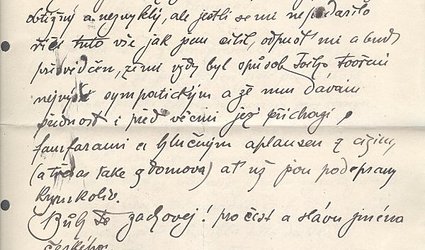 obtížný a nezvyklý, ale jestli se mi nepodařilo
říci tuto vše jak jsem cítil, odpusť mi a buď
přesvědčen, že mi vždy byl způsob
nejvýš sympatickým a že mu dávám
přednost i před věcmi jež přichází s
fanfarami a hlučným aplausem z ciziny
(a třeba také z domova) ať už jsou podepsány
kýmkoliv.
Bůh Tě zachovej! pro čest a slávu jména
českého.